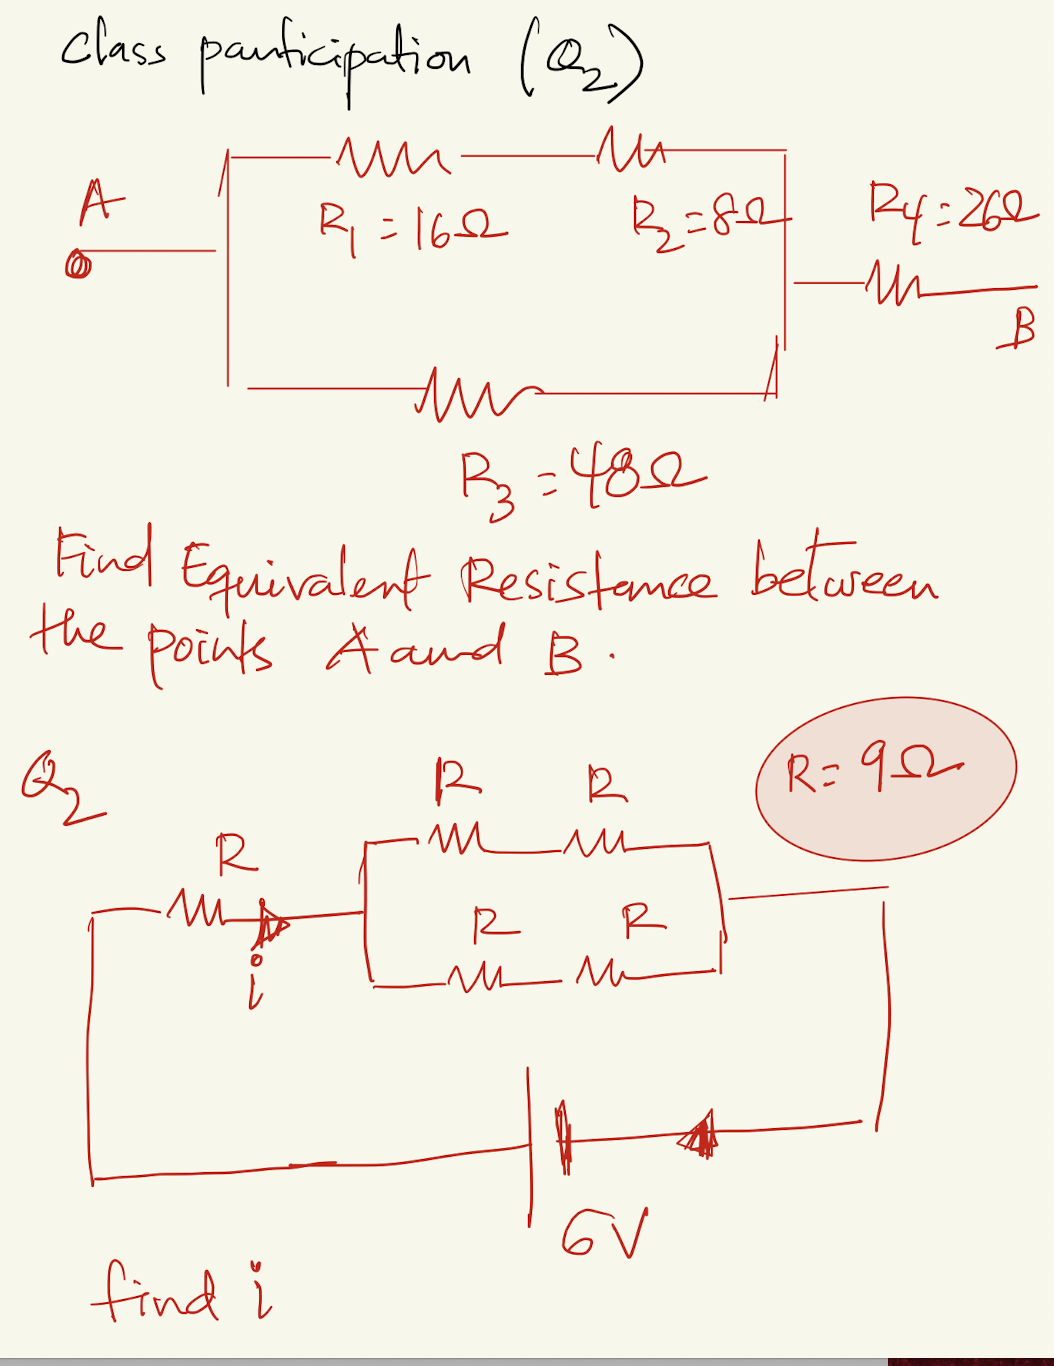 Class participation (Q2)
A
R1 = 16Ω
R2 = 8Ω
R4 = 26Ω
B
R3 = 48Ω
Find Equivalent Resistance between
the points A and B.
Q2
R = 9Ω
R
R
R
R
R
i
6V
find i